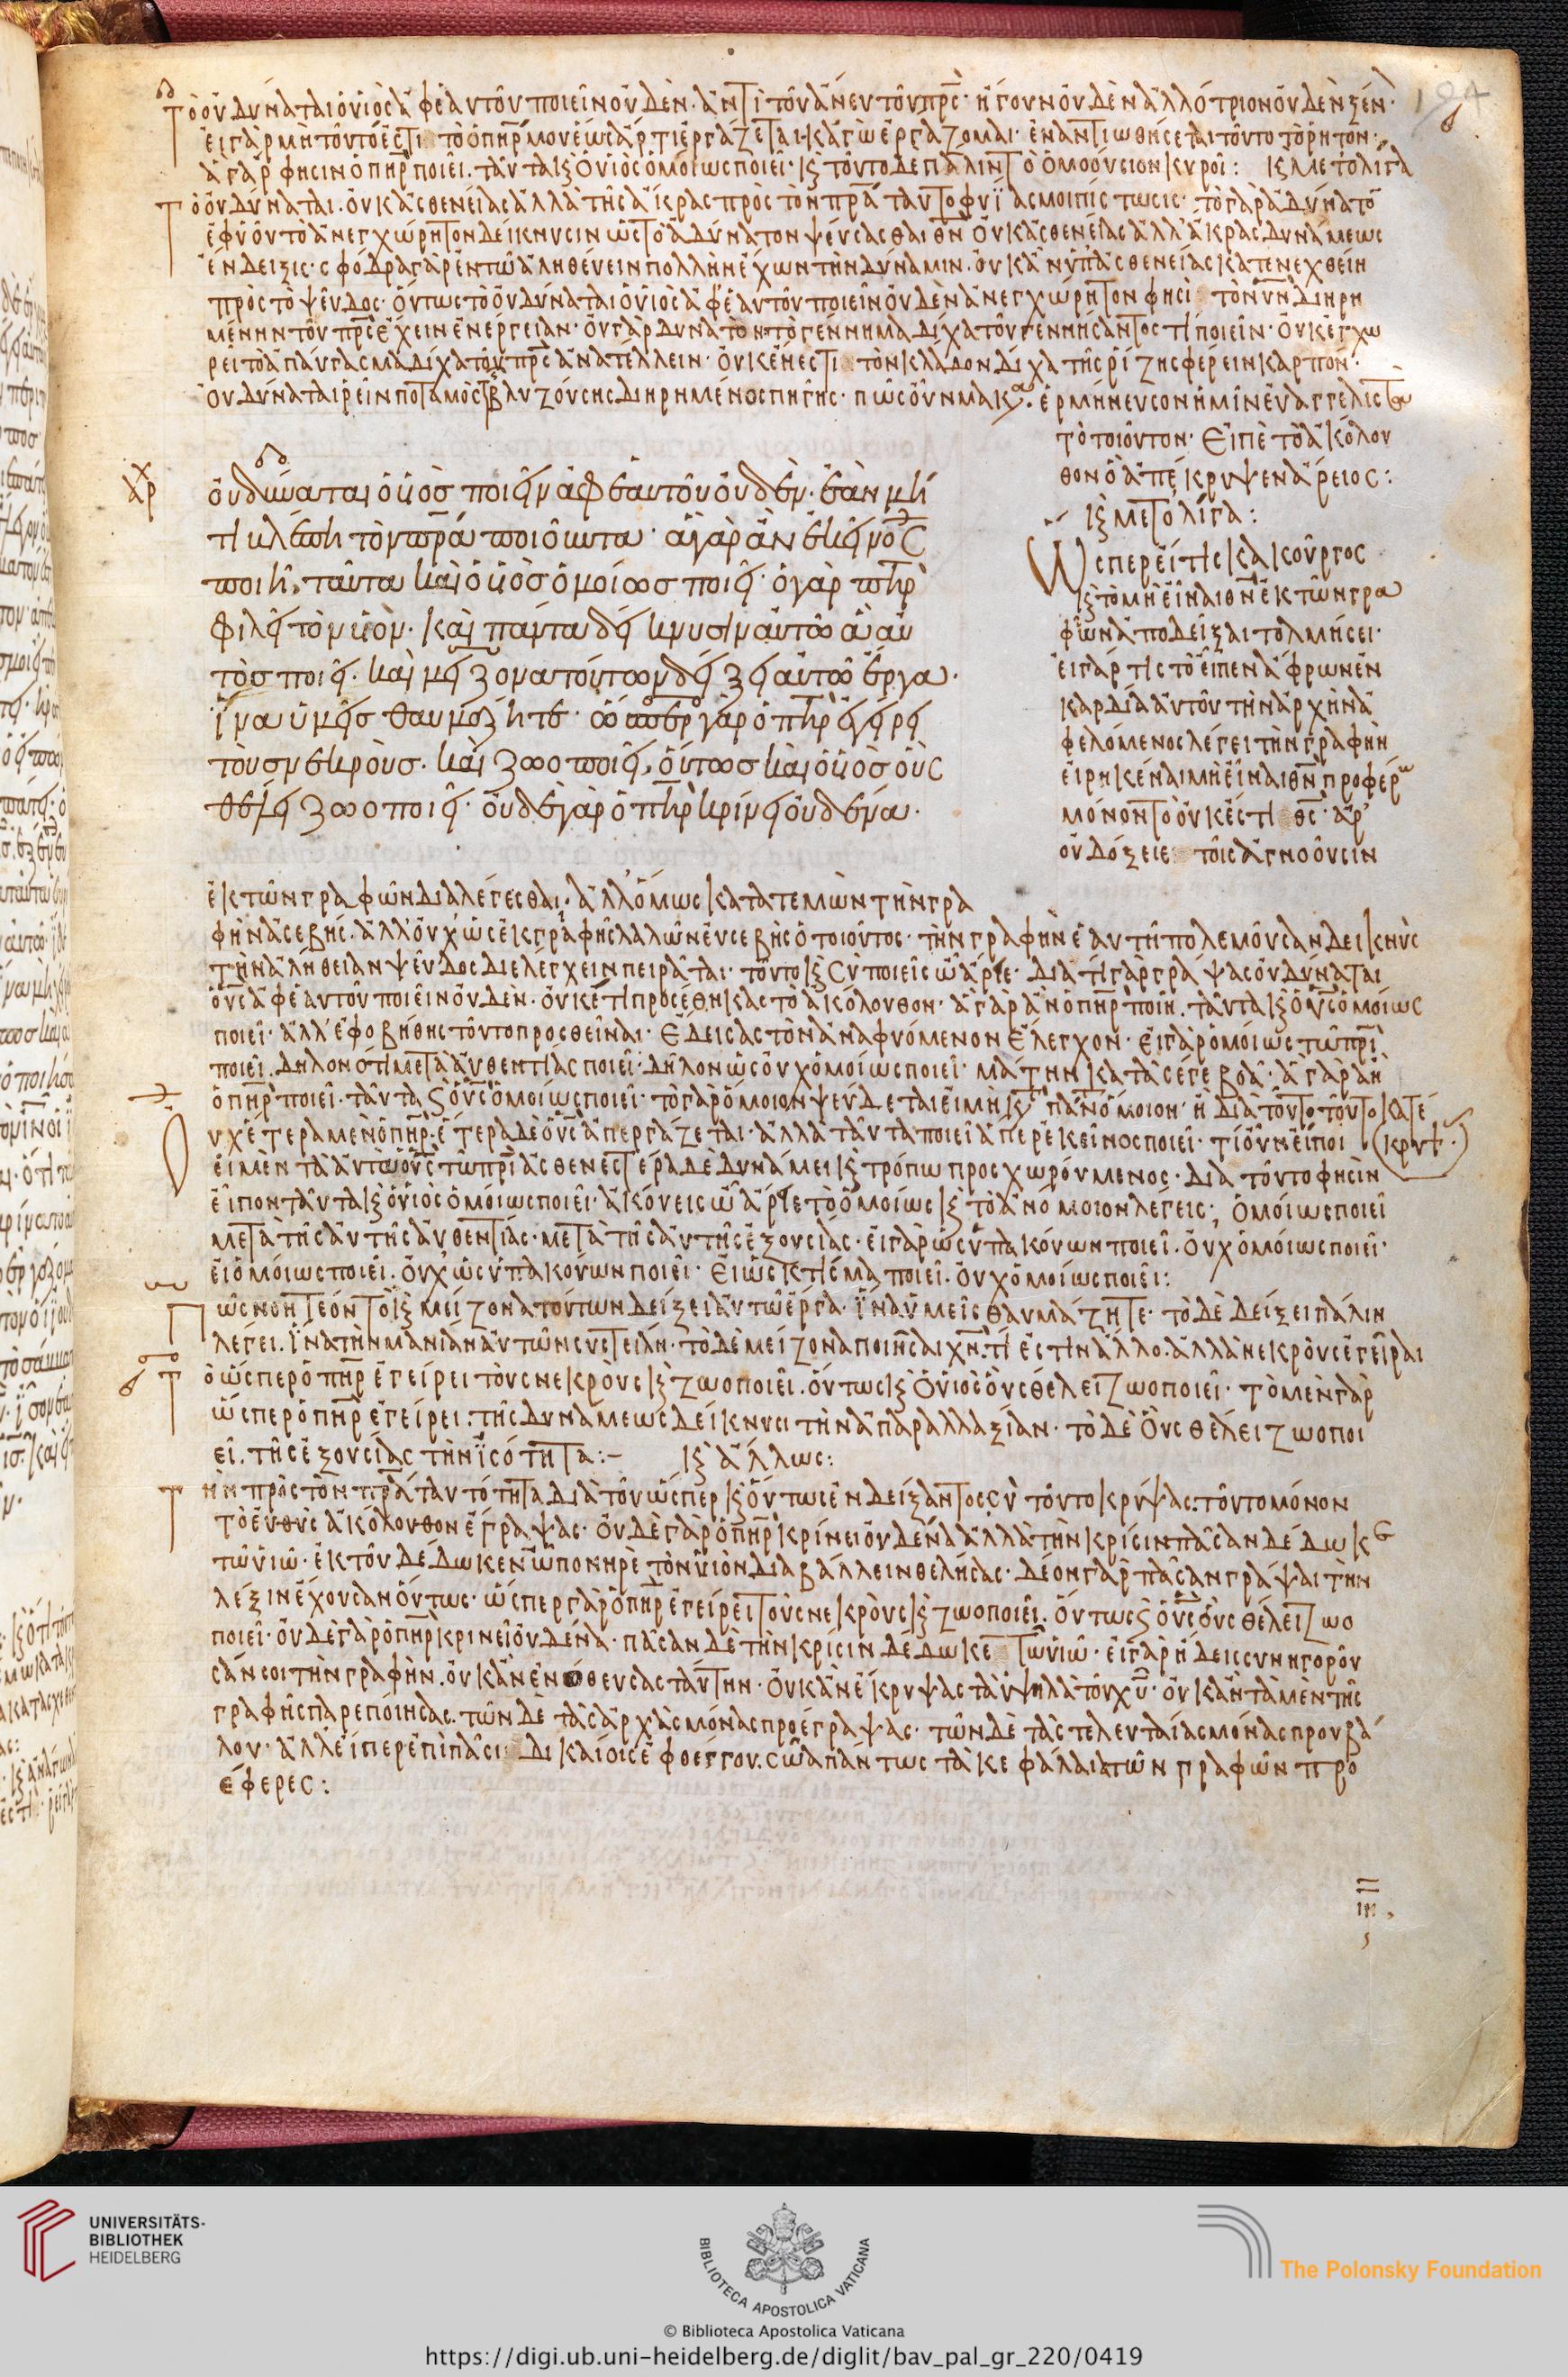 Τὸ οὐ δύναται ὁ υἱὸς ἀφ' ἑαυτοῦ ποιεῖν οὐδέν· ἀντὶ τοῦ ἄνευ τοῦ πρς· ἤγουν οὐδὲν ἀλλότριον οὐδὲν ξένον·
εἰ γὰρ μὴ τοῦτό ἐστι τὸ ὁ πηρ μου ἕως ἄρτι ἐργάζεται κἀγὼ ἐργάζομαι· ἐναντιωθήσεται τοῦτο τὸ ρητόν·
ἃ γάρ φησιν ὁ πηρ ποιεῖ. ταῦτα κ ὁ υἱὸς ὁμοίως ποιεῖ· κ τοῦτο δὲ πάλιν τὸ ὁμοούσιον κυροῖ: κ μετ' ὀλίγα
Τὸ οὐ δύναται. οὐκ ἀσθενείας ἀλλὰ τῆς ἄκρας πρὸς τὸν πρα ταυτοφυΐας μοι πίστωσις· τὸ γὰρ ἀδύνατον
ἐφ' οὗ τὸ ἀνεγχώρητον δείκνυσιν ὡς τὸ ἀδύνατον ψεύσασθαι θν οὐκ ἀσθενείας ἀλλ' ἄκρας δυνάμεως
ἔνδειξις· σφόδρα γὰρ ἐν τῶ ἀληθεύειν πολλὴν ἔχων τὴν δύναμιν. οὐκ ἂν ὑπ' ἀσθενείας κατενεχθείη
πρὸς τὸ ψεῦδος· οὕτως τὸ οὐ δύναται ὁ υἱὸς ἀφ' ἑαυτοῦ ποιεῖν οὐδὲν ἀνεγχώρητον φησὶ τὸν υν διηρη
μένην τοῦ πρς ἔχειν ἐνέργειαν· οὐ γὰρ δυνατὸν τὸ γέννημα δίχα τοῦ γεννήσαντός τι ποιεῖν· οὐκ ἐγχω
ρεῖ τὸ ἀπαύγασμα δίχα τοῦ πρς ἀνατέλλειν· οὐκ ἔνεστι τὸν κλάδον δίχα τῆς ρίζης φέρειν καρπόν·
οὐ δύναται ρεῖν ποταμὸς τῆς βλυζούσης διηρημένος πηγῆς· πῶς οὖν μακ. ἑρμήνευσον ἡμῖν εὐαγγελιστὰ
τὸ τοιοῦτον· Εἰπὲ τὸ ἀκόλου
θον ὃ ἀπέκρυψεν ἄρειος:
χρ
οὐ δύναται ὁ υἱὸσ ποιεῖν ἀφ' ἑαυτοῦ οὐδέν· ἐὰν μή
τι βλέπη τὸν πρα ποιοῦντα· ἃ γὰρ ἂν ἐκεῖνος
ποιῆ, ταῦτα καὶ ὁ υἱὸσ ὁμοίωσ ποιεῖ· ὁ γὰρ πηρ
φιλεῖ τὸν υἱόν· καὶ πάντα δείκνυσιν αὐτῶ ἃ αὐ
τὸσ ποιεῖ. καὶ μείζονα τούτων δείξει αὐτῶ ἔργα·
ἵνα ὑμεῖσ θαυμάζητε· ὥσπερ γὰρ ὁ πηρ ἐγείρει
τοὺσ νεκρούσ· καὶ ζωοποιεῖ, οὕτωσ καὶ ὁ υἱὸσ οὓς
θέλει ζωοποιεῖ· οὐδὲ γὰρ ὁ πηρ κρίνει οὐδένα·
κ μετ' ὀλίγα:
Ὥσπερ εἴ τις κακοῦργος
κ τὸ μὴ εἶναι θν ἐκ τῶν γρα
φῶν ἀποδεῖξαι τολμήσει·
εἰ γάρ τις τὸ εἶπεν ἄφρων ἐν
καρδία αὐτοῦ τὴν ἀρχὴν ἀ
φελόμενος λέγει τὴν γραφὴν
εἰρηκέναι μὴ εἶναι θν προφέρων
μόνον τὸ οὐκ ἔστι θς· ἆρ'
οὐ δόξειε τοῖς ἀγνοοῦσιν
ἐκ τῶν γραφῶν διαλέγεσθαι· ἀλλ' ὅμως κατατεμὼν τὴν γρα
φὴν ἀσεβής. ἀλλ' οὐχ ὡς ἐκ γραφῆς λαλῶν εὐσεβὴς ὁ τοιοῦτος· τὴν γραφὴν ἑαυτῆ πολεμοῦσαν δεικνὺς
τὴν ἀλήθειαν ψεῦδος διελέγχειν πειρᾶται· τοῦτο κ σὺ ποιεῖς ὦ ἄρειε· διατί γὰρ γράψας οὐ δύναται
ὁ υς ἀφ' ἑαυτοῦ ποιεῖν οὐδέν· οὐκέτι προσέθηκας τὸ ἀκόλουθον· ἃ γὰρ ἂν ὁ πηρ ποιῆ. ταῦτα κ ὁ υς ὁμοίως
ποιεῖ· ἀλλ' ἐφοβήθης τοῦτο προσθεῖναι· ἔδεισας τὸν ἀναφυόμενον ἔλεγχον· εἰ γὰρ ὁμοίως τῶ πρι
ποιεῖ. δηλονότι μετὰ αὐθεντίας ποιεῖ· δῆλον ὡς οὐχ ὁμοίως ποιεῖ· μάτην κατὰ σέ γε βοᾶ· ἃ γὰρ ἂν
ὁ πηρ ποιεῖ· ταῦτα κ ὁ υς ὁμοίως ποιεῖ· τὸ γὰρ ὅμοιον ψεύδεται εἰ μὴ κατὰ πᾶν ὅμοιον· ἢ διὰ τοῦτο τοῦτο κατέ
κρυψ·
υχ ἕτερα μὲν ὁ πηρ· ἕτερα δὲ ὁ υς ἀπεργάζεται· ἀλλὰ ταῦτα ποιεῖ ἅπερ ἐκεῖνος ποιεῖ· τί οὖν εἴποι
εἰ μὲν τὰ αὐτὰ ὁ υς τῶ πρι ἀσθενεστέρα δὲ δυνάμει κ τρόπω προσχωρούμενος· διὰ τοῦτο φησὶν
εἶπον ταῦτα κ ὁ υἱὸς ὁμοίως ποιεῖ· ἀκούεις ὦ ἄρειε τὸ ὁμοίως κ τὸ ἀνόμοιον λέγεις; ὁμοίως ποιεῖ
μετὰ τῆς αὐτῆς αὐθεντίας· μετὰ τῆς αὐτῆς ἐξουσίας· εἰ γὰρ ὡς ὑπακούων ποιεῖ. οὐχ ὁμοίως ποιεῖ·
εἰ ὁμοίως ποιεῖ. οὐχ ὡς ὑπακούων ποιεῖ· Εἰ ὡς κτίσμα ποιεῖ. οὐχ ὁμοίως ποιεῖ:
Πῶς νοητέον τὸ κ μείζονα τούτων δείξει αὐτῶ ἔργα· ἵνα ὑμεῖς θαυμάζητε· τὸ δὲ δείξει πάλιν
λέγει. ἵνα τὴν μανίαν αὐτῶν συστείλη· τὸ δὲ μείζονα ποιῆσαι χν. τί ἐστιν ἄλλο. ἀλλὰ νεκροὺς ἐγεῖραι
Τὸ ὥσπερ ὁ πηρ ἐγείρει τοὺς νεκροὺς κ ζωοποιεῖ. οὕτως κ ὁ υἱὸς οὓς θέλει ζωοποιεῖ· τὸ μὲν γὰρ
ὥσπερ ὁ πηρ ἐγείρει· τῆς δυνάμεως δείκνυσι τὴν ἀπαραλλαξίαν· τὸ δὲ οὓς θέλει ζωοποι
εῖ. τῆς ἐξουσίας τὴν ἰσότητα:– κ ἄλλως:
Τὴν πρὸς τὸν πρα ταυτότητα διὰ τοῦ ὥσπερ κ οὕτως ἐνδείξαντος σὺ τοῦτο κρύψας. τοῦτο μόνον
τὸ εὐθὺς ἀκόλουθον ἔγραψας· οὐδὲ γὰρ ὁ πηρ κρίνει οὐδένα ἀλλὰ τὴν κρίσιν πᾶσαν δέδωκε
τῶ υἱῶ· ἐκ τοῦ δέδωκεν ὦ πονηρὲ τὸν υἱὸν διαβάλλειν θελήσας· δέον γὰρ πᾶσαν γράψαι τὴν
λέξιν ἔχουσαν οὕτως· ὥσπερ γὰρ ὁ πηρ ἐγείρει τοὺς νεκροὺς κ ζωοποιεῖ. οὕτως κ ὁ υς οὓς θέλει ζωο
ποιεῖ· οὐδὲ γὰρ ὁ πηρ κρίνει οὐδένα· πᾶσαν δὲ τὴν κρίσιν δέδωκε τῶ υἱῶ· εἰ γὰρ ἤδεις συνηγοροῦ
σάν σοι τὴν γραφὴν. οὐκ ἂν ἐνόθευσας ταύτην· οὐκ ἂν ἔκρυψας τὰ ὑψηλὰ τοῦ χυ· οὐκ ἂν τὰ μὲν τῆς
γραφῆς παρεποίησας. τῶν δὲ τὰς ἀρχὰς μόνας προέγραψας· τῶν δὲ τὰς τελευταίας μόνας προυβά
λου· ἀλλ' εἴπερ ἐπὶ πᾶσι δικαίοις ἐφθέγγου. σῶα πάντως τὰ κεφάλαια τῶν γραφῶν προ
έφερες:
UNIVERSITÄTS-
BIBLIOTHEK
HEIDELBERG
BIBLIOTECA APOSTOLICA VATICANA
The Polonsky Foundation
© Biblioteca Apostolica Vaticana
https://digi.ub.uni-heidelberg.de/diglit/bav_pal_gr_220/0419